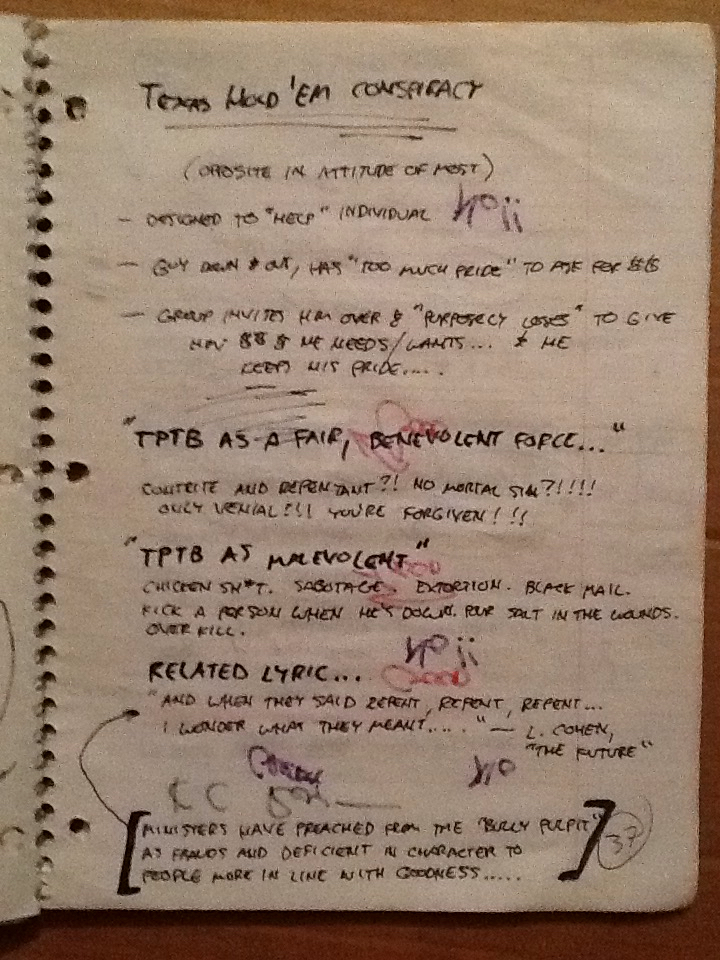 TEXAS HOLD 'EM CONSPIRACY
(OPPOSITE IN ATTITUDE OF MOST)
— DESIGNED TO "HELP" INDIVIDUAL
— GUY DOWN & OUT, HAS "TOO MUCH PRIDE" TO ASK FOR $$$
— GROUP INVITES HIM OVER & "PURPOSELY LOSES" TO GIVE
HIM $$ $ HE NEEDS/WANTS... & HE
KEEPS HIS PRIDE....
"TPTB AS A FAIR, BENEVOLENT FORCE..."
CONTRITE AND REPENTANT?! NO MORTAL SIN?!!!!
ONLY VENIAL!!! YOU'RE FORGIVEN!!!
"TPTB AS MALEVOLENT"
CHICKEN SH*T. SABOTAGE. EXTORTION. BLACK MAIL.
KICK A PERSON WHEN HE'S DOWN. POUR SALT IN THE WOUNDS.
OVER KILL.
RELATED LYRIC...
"AND WHEN THEY SAID REPENT, REPENT, REPENT...
I WONDER WHAT THEY MEANT...." — L. COHEN,
"THE FUTURE"
[MINISTERS HAVE PREACHED FROM THE "BULLY PULPIT"
AS FRAUDS AND DEFICIENT IN CHARACTER TO
PEOPLE MORE IN LINE WITH GOODNESS.....]
37